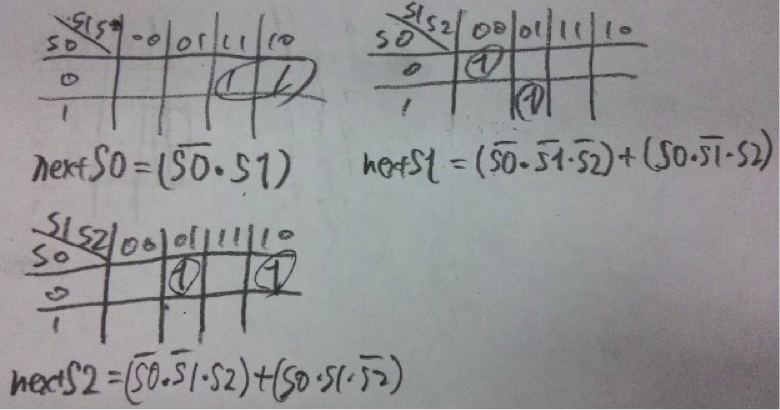 S1S2 00 01 11 10
S0
0 1 1
1
nextS0 = (S̅0̅·S1)
S1S2 00 01 11 10
S0
0 1
1 1
nextS1 = (S̅0̅·S̅1̅·S̅2̅)+(S0·S̅1̅·S2)
S1S2 00 01 11 10
S0
0 1 1
1
nextS2 = (S̅0̅·S̅1̅·S2)+(S0·S1·S̅2̅)